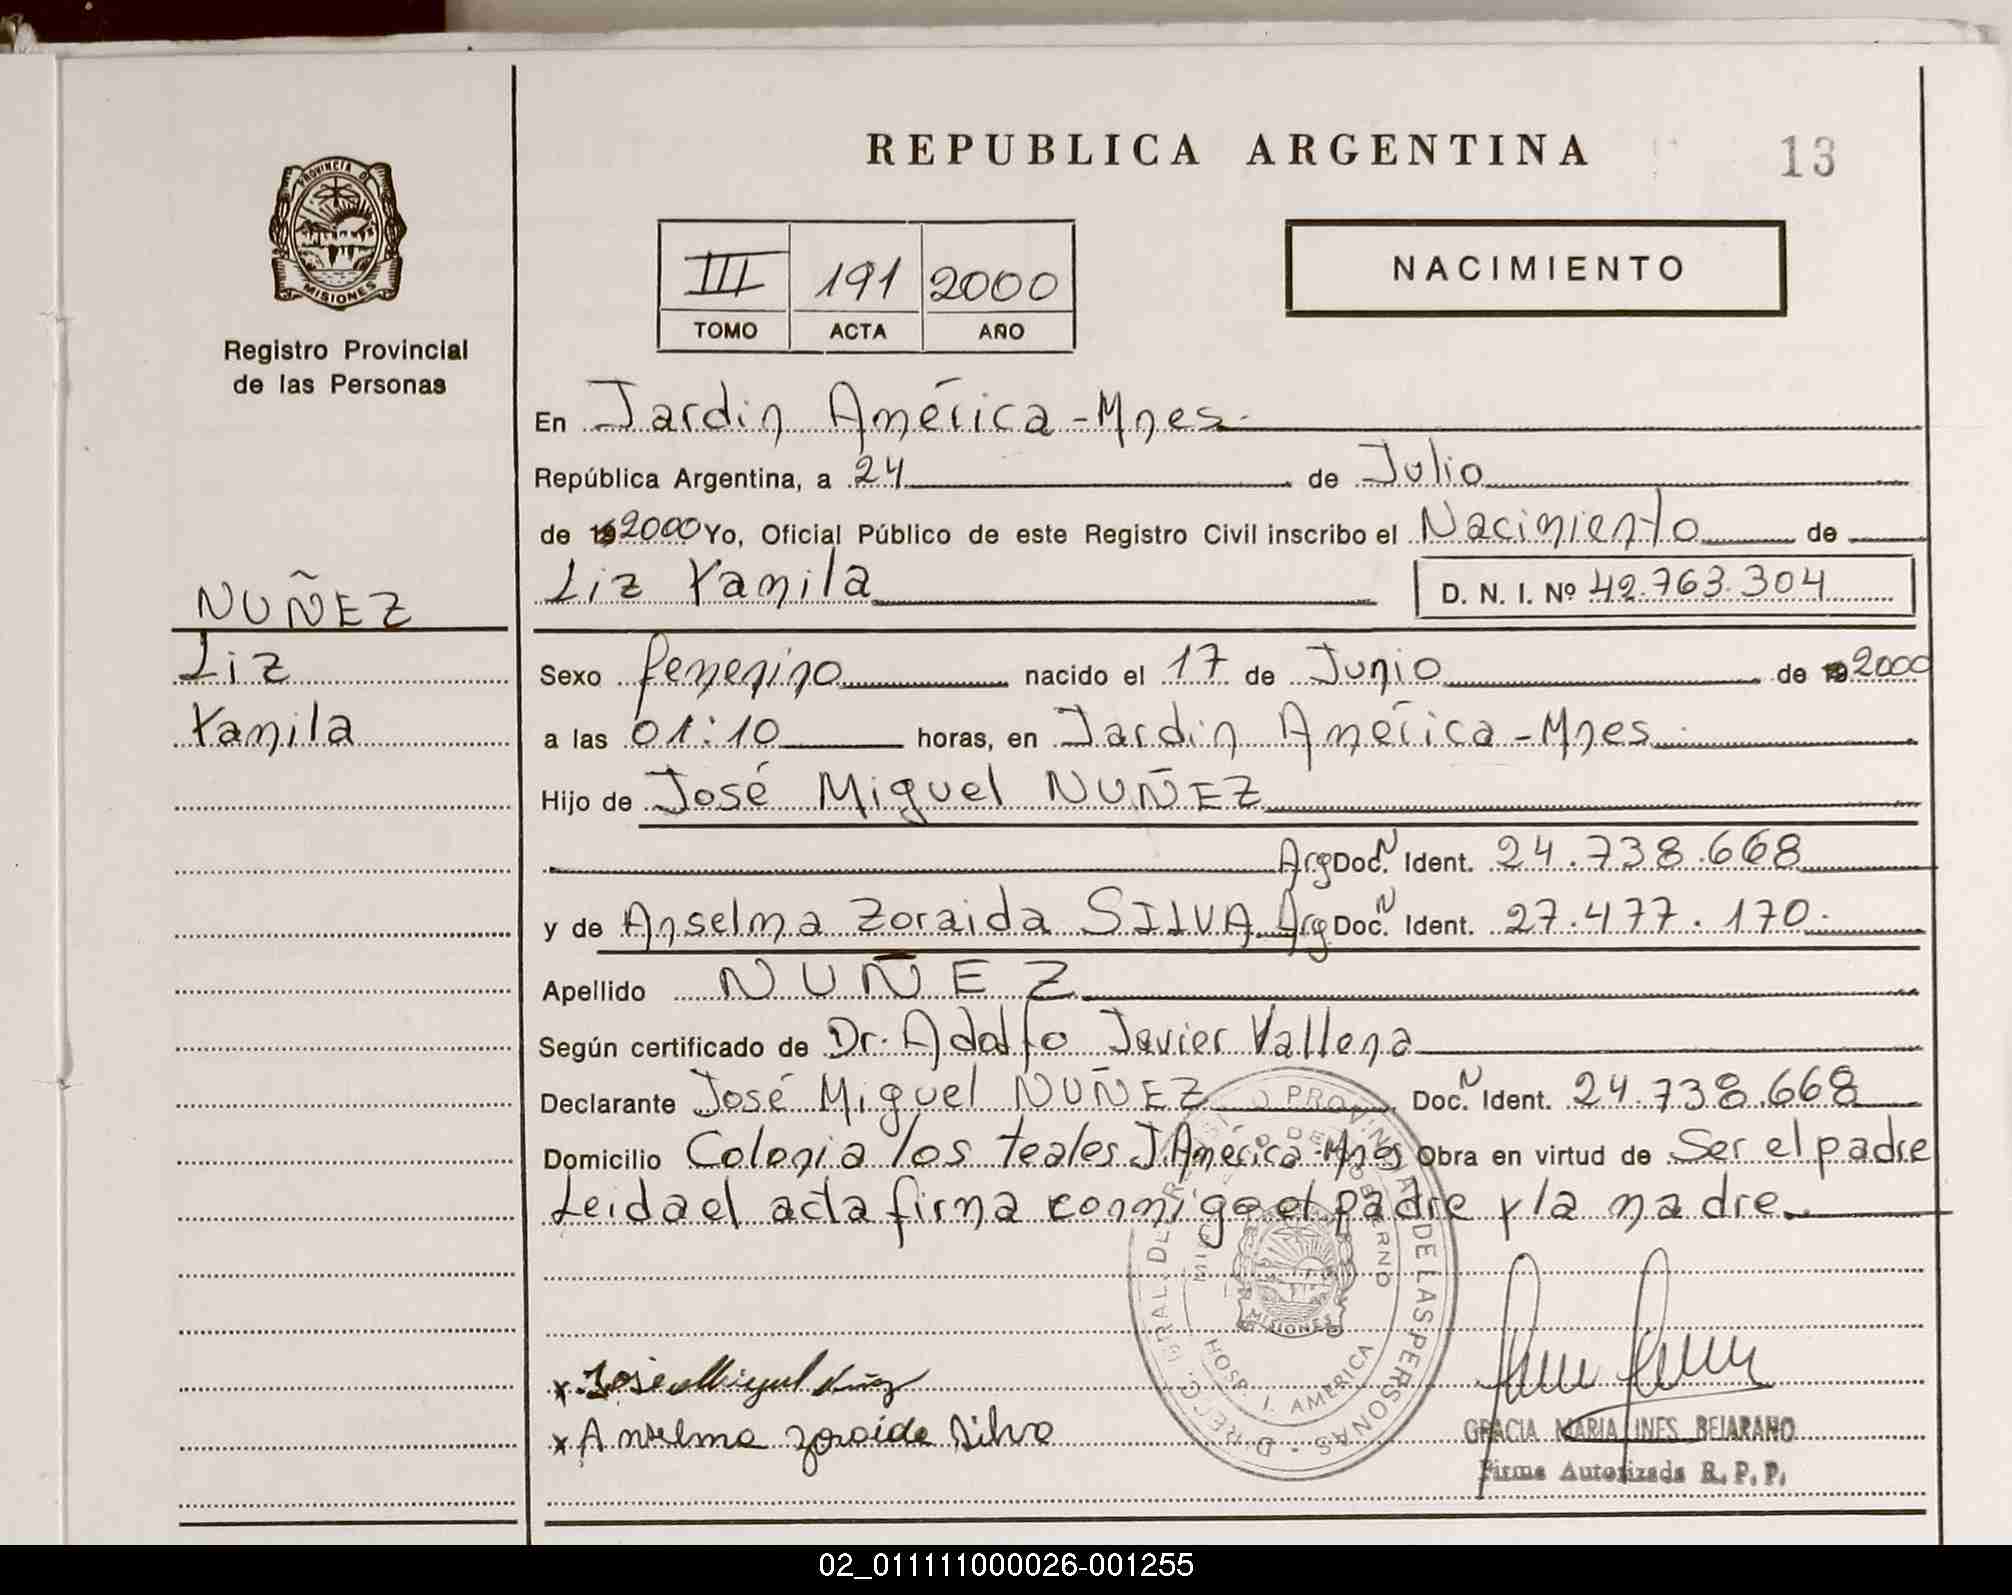 REPUBLICA ARGENTINA
13
PROVINCIA DE
MISIONES
Registro Provincial
de las Personas
III 191 2000
TOMO ACTA AÑO
NACIMIENTO
En Jardin América - Mnes.
República Argentina, a 24 de Julio
de 19 2000 Yo, Oficial Público de este Registro Civil inscribo el Nacimiento de
Liz Yamila D. N. I. Nº 42.763.304
NUÑEZ
Liz
Yamila
Sexo femenino nacido el 17 de Junio de 19 2000
a las 01:10 horas, en Jardin América - Mnes.
Hijo de José Miguel NUÑEZ
Arg Doc. N Ident. 24.738.668
y de Anselma Zoraida SILVA Arg Doc. N Ident. 27.477.170.
Apellido NUÑEZ
Según certificado de Dr. Adolfo Javier Vallena
Declarante José Miguel NUÑEZ Doc. N Ident. 24.738.668
Domicilio Colonia los teales J. América - Mnes Obra en virtud de Ser el padre
Leida el acta firma conmigo el padre y la madre.
DIREC. GRAL. DE REGISTRO PROVINCIAL DE LAS PERSONAS
GOBIERNO
MISIONES
HOSP. J. AMERICA
x José Miguel Nuñez
x Anselma Zoraida Silva
GRACIA MARIA INES BEJARANO
Firma Autorizada R. P. P.
02_011111000026-001255